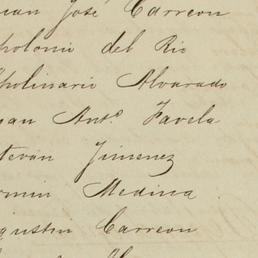 uan José Carreon
polonio del Rio
polinario Alvarado
uan Anto. Favela
stevan Jimenez
rmin Medina
gustin Carreon